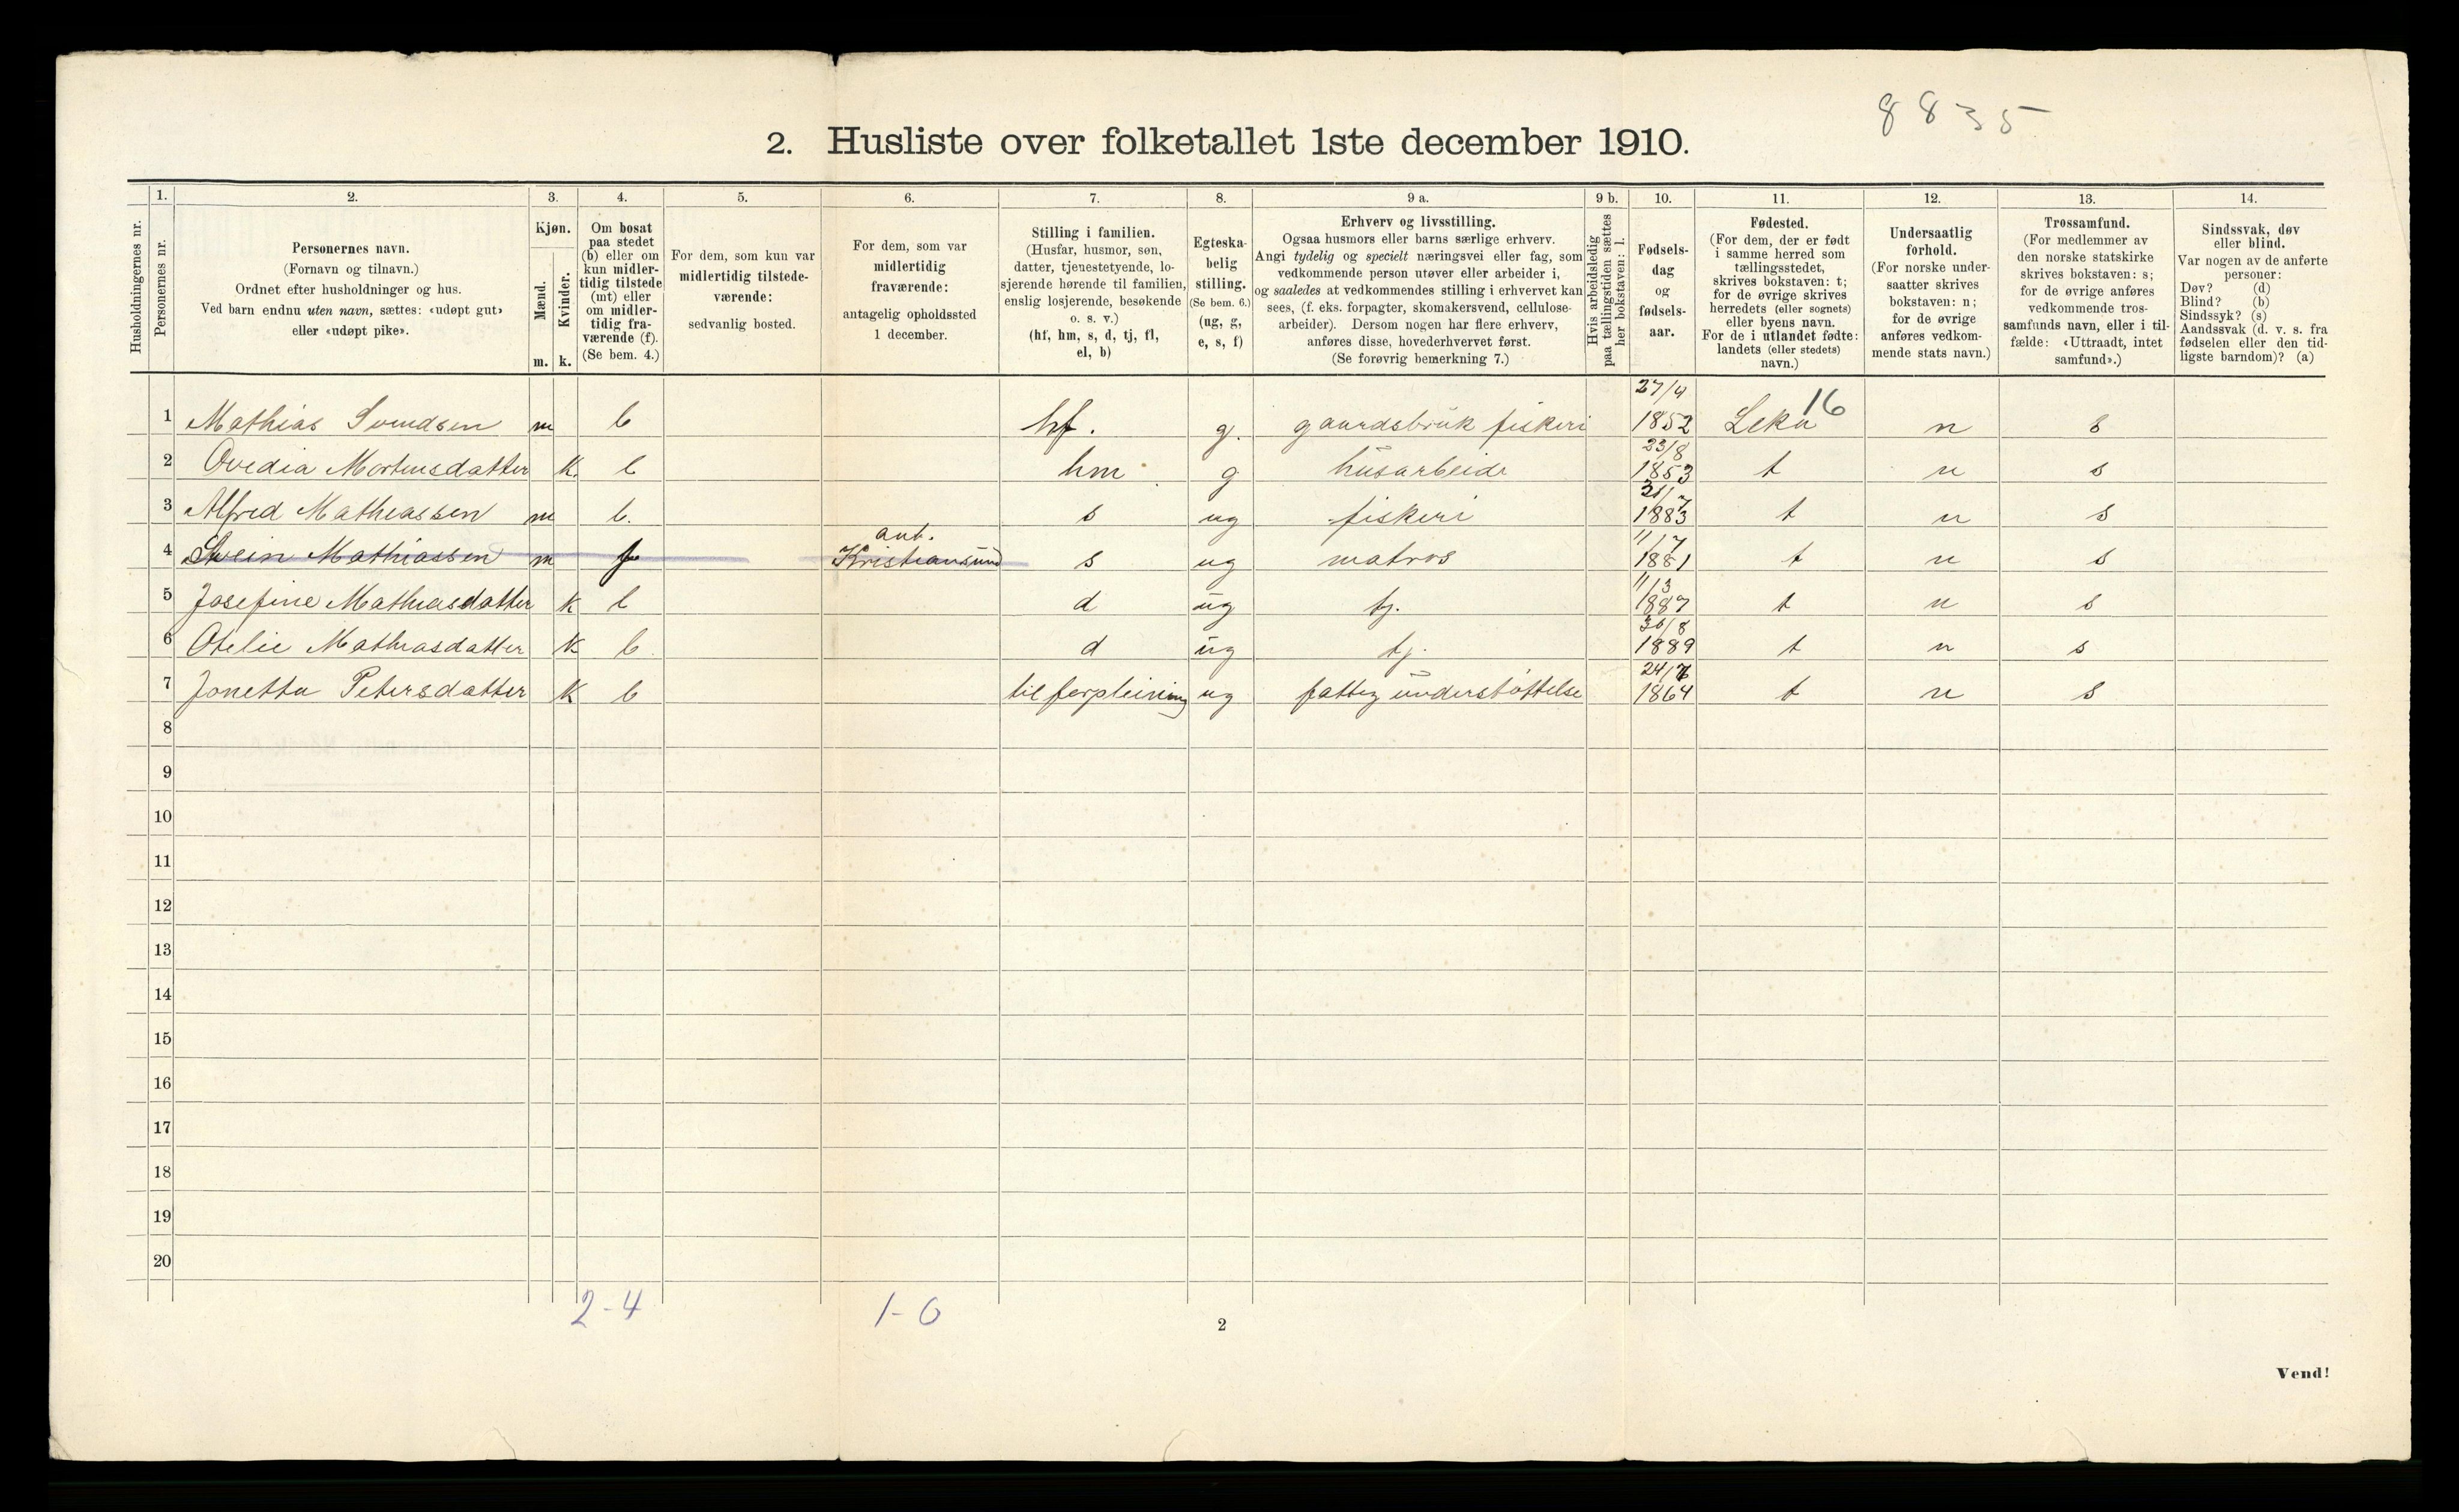 8835
2. Husliste over folketallet 1ste december 1910.
Husholdningernes nr.
1.
Personernes nr.
2.
Personernes navn.
(Fornavn og tilnavn.)
Ordnet efter husholdninger og hus.
Ved barn endnu uten navn, sættes: «udøpt gut»
eller «udøpt pike».
3.
Kjøn.
Mænd.
m.
Kvinder.
k.
4.
Om bosat
paa stedet
(b) eller om
kun midler-
tidig tilstede
(mt) eller
om midler-
tidig fra-
værende (f).
(Se bem. 4.)
5.
For dem, som kun var
midlertidig tilstede-
værende:
sedvanlig bosted.
6.
For dem, som var
midlertidig
fraværende:
antagelig opholdssted
1 december.
7.
Stilling i familien.
(Husfar, husmor, søn,
datter, tjenestetyende, lo-
sjerende hørende til familien,
enslig losjerende, besøkende
o. s. v.)
(hf, hm, s, d, tj, fl,
el, b)
8.
Egteska-
belig
stilling.
(Se bem. 6.)
(ug, g,
e, s, f)
9 a.
Erhverv og livsstilling.
Ogsaa husmors eller barns særlige erhverv.
Angi tydelig og specielt næringsvei eller fag, som
vedkommende person utøver eller arbeider i,
og saaledes at vedkommendes stilling i erhvervet kan
sees, (f. eks. forpagter, skomakersvend, cellulose-
arbeider). Dersom nogen har flere erhverv,
anføres disse, hovederhvervet først.
(Se forøvrig bemerkning 7.)
9 b.
Hvis arbeidsledig
paa tællingstiden sættes
her bokstaven: l.
10.
Fødsels-
dag
og
fødsels-
aar.
11.
Fødested.
(For dem, der er født
i samme herred som
tællingsstedet,
skrives bokstaven: t;
for de øvrige skrives
herredets (eller sognets)
eller byens navn.
For de i utlandet fødte:
landets (eller stedets)
navn.)
12.
Undersaatlig
forhold.
(For norske under-
saatter skrives
bokstaven: n;
for de øvrige
anføres vedkom-
mende stats navn.)
13.
Trossamfund.
(For medlemmer av
den norske statskirke
skrives bokstaven: s;
for de øvrige anføres
vedkommende tros-
samfunds navn, eller i til-
fælde: «Uttraadt, intet
samfund».)
14.
Sindssvak, døv
eller blind.
Var nogen av de anførte
personer:
Døv? (d)
Blind? (b)
Sindssyk? (s)
Aandssvak (d. v. s. fra
fødselen eller den tid-
ligste barndom)? (a)
1 Mathias Svendsen m b hf. g. gaardsbruk fiskeri 27/4 1852 Leka 16 n s
2 Ovedia Mortensdatter k. b hm g husarbeide 23/8 1853 t n s
3 Alfred Mathiassen m b. s ug fiskeri 1883 t n s
4 Svein Mathiassen m f ant. Kristiansund s ug matros 11/7 1881 t n s
5 Josefine Mathiasdatter k b d ug tj. 11/3 1887 t n s
6 Otelie Mathiasdatter k b d ug tj. 30/8 1889 t n s
7 Jonetta Petersdatter k b til forpleining ug fattig understøttelse 1864 t n s
8
9
10
11
12
13
14
15
16
17
18
19
20
2-4 1-0
2
Vend!